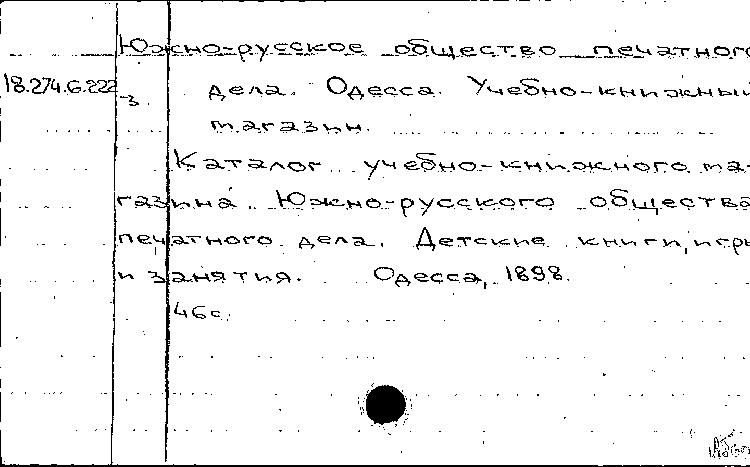 Южно-русское общество печатного
18.274.6.222
3
дела. Одесса. Учебно-книжный
магазин.
Каталог учебно-книжного ма-
газина Южно-русского общества
печатного дела. Детские книги, игры
и занятия. Одесса, 1898.
46с.